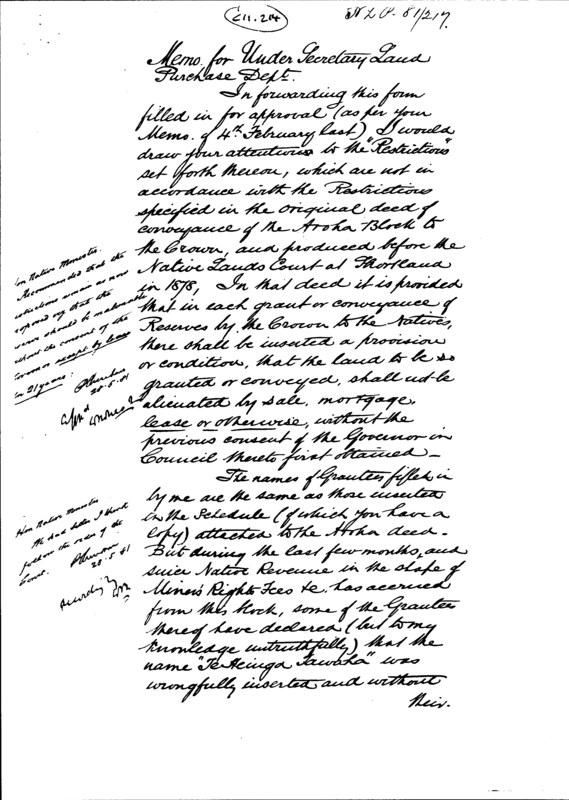 C11.204
N.L.P. 81/217.
Memo. for Under Secretary Land
Purchase Dept.
In forwarding this form
filled in for approval (as per your
Memo. of 4th February last) I would
draw your attention to the "Restrictions"
set forth thereon, which are not in
accordance with the Restrictions
specified in the original deed of
conveyance of the Aroha Block to
the Crown, and produced before the
Native Lands Court at Shortland
in 1878, In that deed it is provided
that in each grant or conveyance of
Reserves by the Crown to the Natives,
there shall be inserted a provision
or condition, that the land to be so
granted or conveyed, shall not be
alienated by sale, mortgage,
lease or otherwise, without the
previous consent of the Governor in
Council thereto first obtained_
The names of Grantees filled in
by me are the same as those inserted
in the Schedule (of which you have a
copy) attached to the Aroha deed.
But during the last few months, and
since Native Revenue in the shape of
Miners Rights Fees &c. has accrued
from this block, some of the Grantees
thereof have declared (but to my
knowledge untruthfully) that the
name "Te Heinga Tawaha" was
wrongfully inserted and without
their.
Hon Native Minister.
Recommended that the
as now
that the
should be inalienable
without the consent of the
Governor except by lease
for 21 years:
28.5.81
Hon Native Minister
We had better I think
follow the order of the
Court.
28.5.81